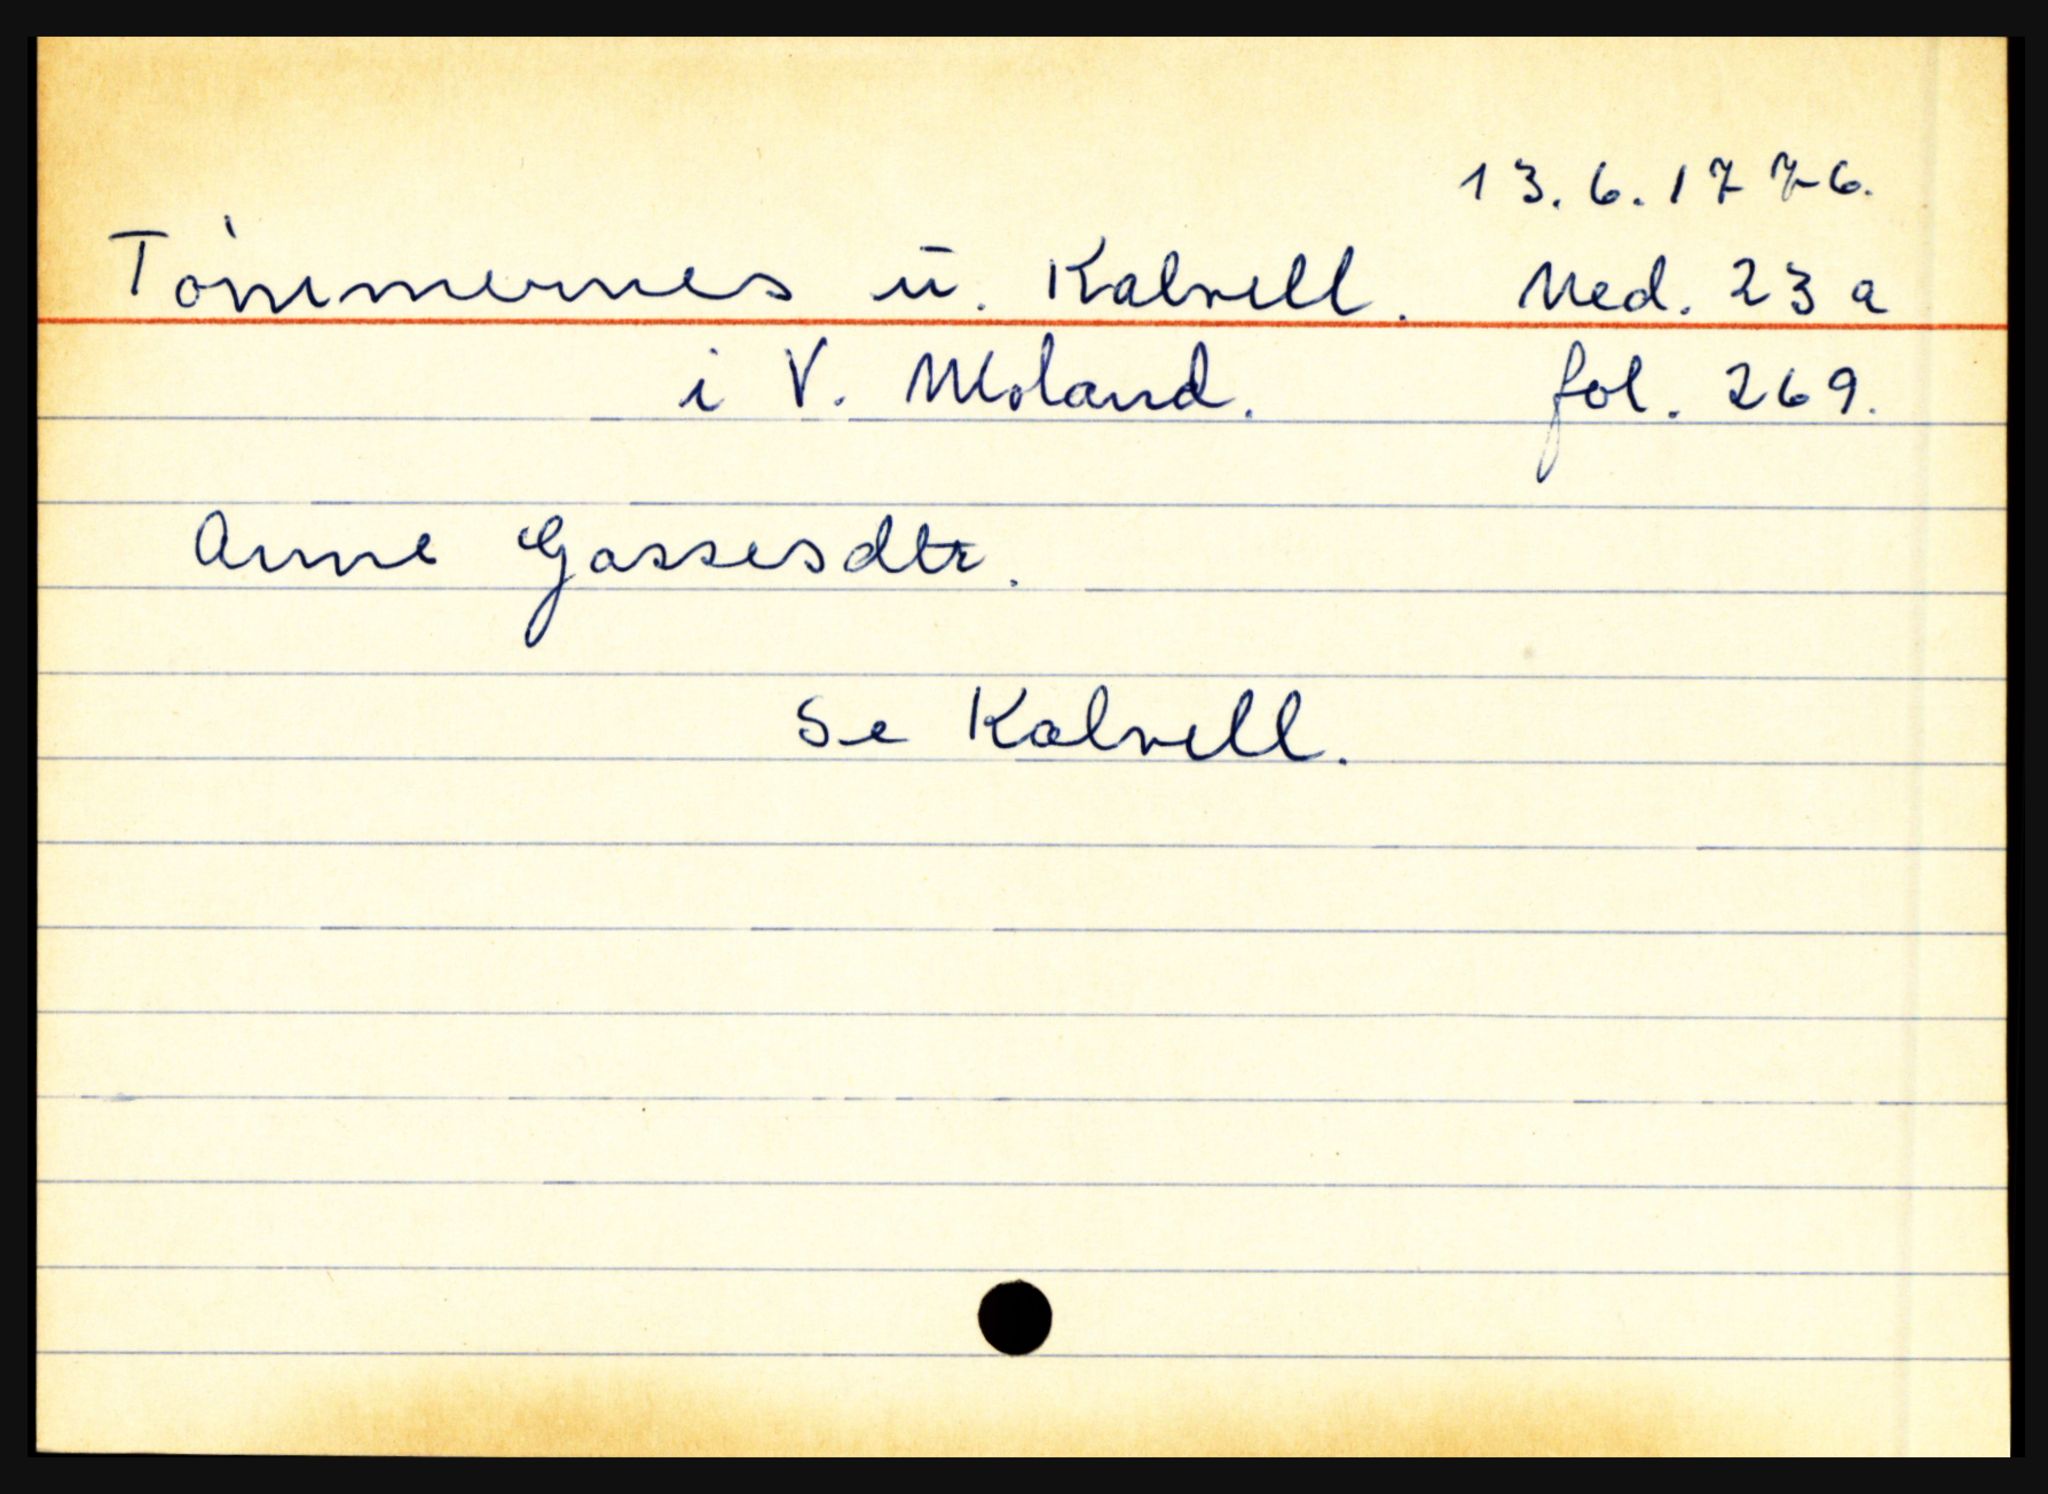 13.6.1776.
Tómmernes ū. Kalvell. Ned. 23 a
i V. Moland. fol. 269.
Anne Gassesdtr.
Se Kalvell.